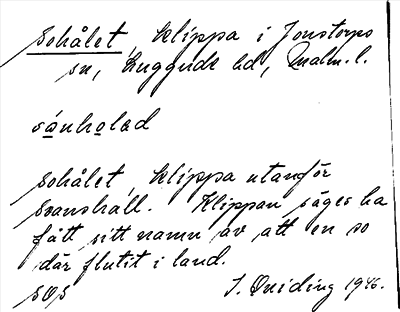 Sohålet, klippa i Jonstorps
sn, Luggude hd, Malm. l.
sóuholad
Sohålet, klippa utanför
Svanshall. Klippan säges ha
fått sitt namn av att en so
där flutit i land.
SOS I. Quiding 1946.